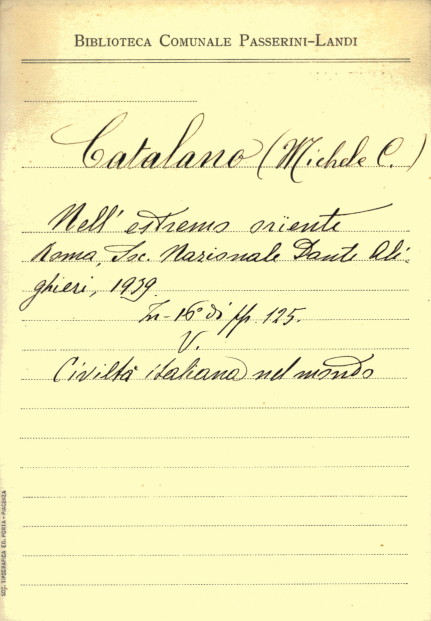 BIBLIOTECA COMUNALE PASSERINI-LANDI
Catalano (Michele C.)
Nell' estremo oriente
Roma, Soc. Nazionale Dante Ali-
ghieri, 1939
In-16° di pp. 125.
V.
Civiltà italiana nel mondo
SOC. TIPOGRAFICA ED. PORTA - PIACENZA